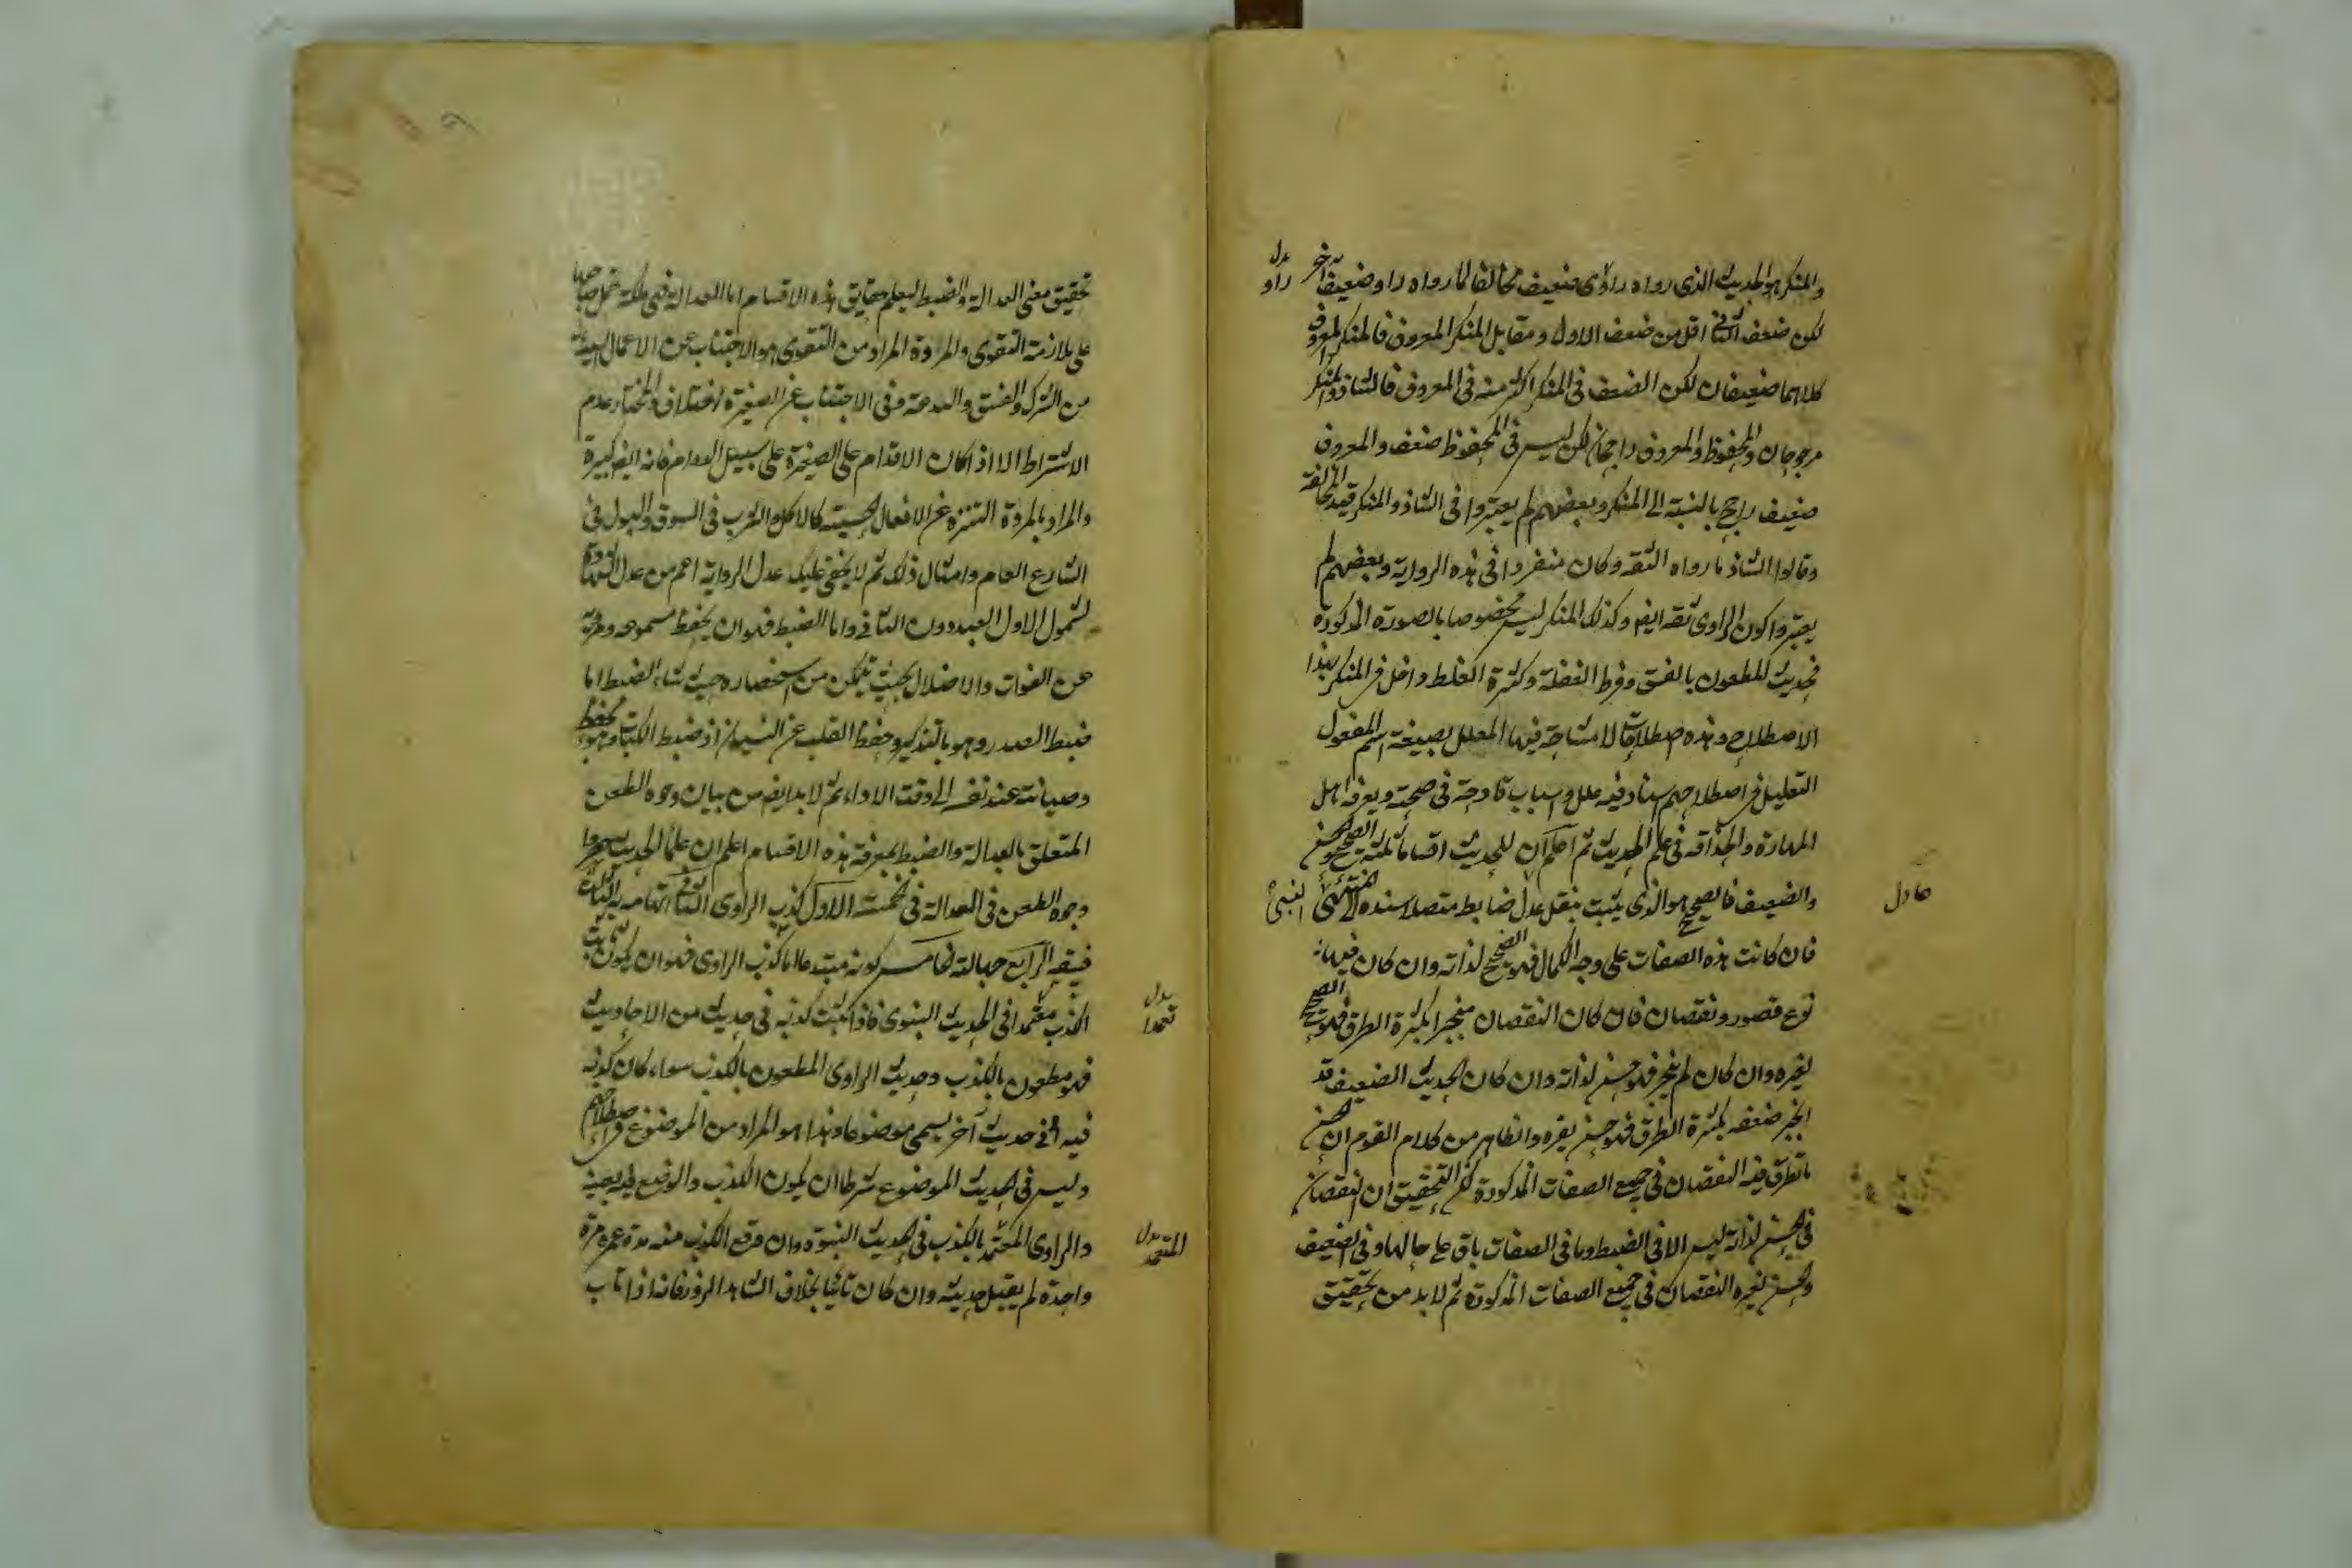 والمنكر هو الحديث الذى رواه راوى ضعيف مخالفا لما رواه راو ضعيف آخر
بدل راو
لكن ضعف الثانى اقل من ضعف الاول ومقابل المنكر المعروف فالمنكر والمعروف
كلاهما ضعيفان لكن الضعف فى المنكر اكثر منه فى المعروف فالشاذ والمنكر
مرجوحان والمحفوظ والمعروف راجحان لكن ليس فى المحفوظ ضعف والمعروف
ضعيف راجح بالنسبة الى المنكر وبعضهم لم يعتبروا فى الشاذ والمنكر قيد المخالفة
وقالوا الشاذ ما رواه الثقة وكان منفردا فى هذه الرواية وبعضهم لم
يعتبروا كون الراوى ثقة ايضا وكذلك المنكر ليس مخصوصا بالصورة المذكورة
فحديث المطعون بالفسق وفرط الغفلة وكثرة الغلط داخل فى المنكر بهذا
الاصطلاح وهذه اصطلاحات لا مشاحة فيها المعلل بصيغة اسم المفعول
التعليل فى اصطلاحهم اسناد فيه علل واسباب قادحة فى صحته ويعرفه اهل
المهارة والحذاقة فى علم الحديث ثم اعلم ان للحديث اقساما ثلثة الصحيح والحسن
والضعيف فالصحيح هو الذى يثبت بنقل عدل ضابط متصلا سنده الى المنتهى
النبى
عادل
فان كانت هذه الصفات على وجه الكمال فهو الصحيح لذاته وان كان فيها
نوع قصور ونقصان فان كان النقصان منجبرا بكثرة الطرق فهو الصحيح
لغيره وان كان لم ينجبر فهو حسن لذاته وان كان الحديث الضعيف قد
انجبر ضعفه بكثرة الطرق فهو حسن لغيره والظاهر من كلام القوم ان الحسن
ما تطرق فيه النقصان فى جميع الصفات المذكورة لكن التحقيق ان النقصان
فى الحسن لذاته ليس الا فى الضبط وما فى الصفات باق على حالها وفى الضعيف
والحسن لغيره النقصان فى جميع الصفات المذكورة ثم لا بد من تحقيق
تحقيق معنى العدالة والضبط ليعلم حقايق هذه الاقسام اما العدالة فهى ملكة تحمل صاحبها
على ملازمة التقوى والمروة المراد من التقوى هو الاجتناب عن الاعمال السيئة
من الشرك والفسق والبدعة وفى الاجتناب عن الصغيرة اختلاف والمختار عدم
الاشتراط الا اذا كان الاقدام على الصغيرة على سبيل الدوام فانه ايضا كبيرة
والمراد بالمروة التنزه عن الافعال الخسيسة كالاكل والشرب فى السوق والبول فى
الشارع العام وامثال ذلك ثم لا يخفى عليك عدل الرواية اعم من عدل الشهادة
لشمول الاول العبد دون الثانى واما الضبط فهو ان يحفظ مسموعه ومرويه
عن الفوات والاختلال بحيث يتمكن من استحضاره حيث شاء الضبط اما
ضبط الصدر وهو بالتذكير وحفظ القلب عن النسيان او ضبط الكتاب وهو بحفظه
وصيانته عند نفسه الى وقت الاداء ثم لا بد ايضا من بيان وجوه الطعن
المتعلق بالعدالة والضبط لمعرفة هذه الاقسام اعلم ان علماء الحديث حصروا
وجوه الطعن فى العدالة فى خمسة الاول كذب الراوى الثانى اتهامه به الثالث
فسقه الرابع جهالته الخامس كونه مبتدعا اما كذب الراوى فهو ان يكون يثبت
الكذب معتمدا فى الحديث النبوى فاذا ثبت كذبه فى حديث من الاحاديث
بدل تعمدا
فهو مطعون بالكذب وحديث الراوى المطعون بالكذب سواء كان كذبه
فيه او فى حديث آخر يسمى موضوعا وهذا هو المراد من الموضوع فى اصطلاحهم
وليس فى الحديث الموضوع شرطا ان يكون الكذب والوضع فيه بعينه
والراوى المعتمد بالكذب فى الحديث النبوى وان وقع الكذب منه مدة عمره مرة
بدل المتعمد
واحدة لم يقبل حديثه وان كان تائبا بخلاف الشاهد الزور فانه اذا تاب